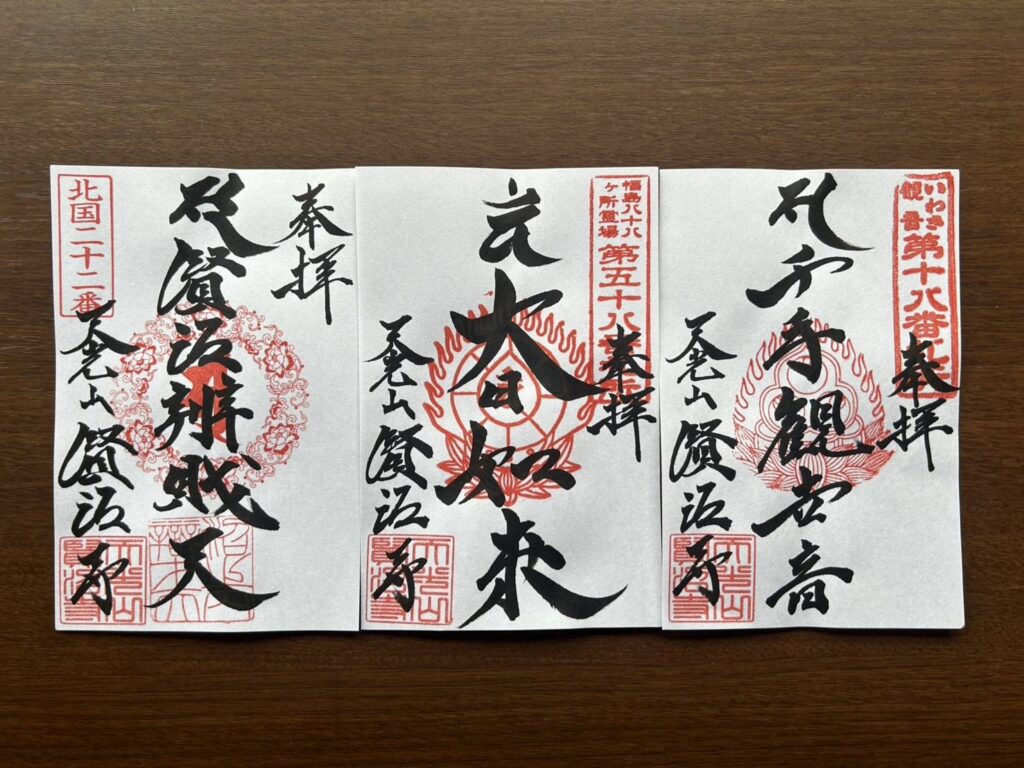 いわき
観音
第十八番
奉拝
千手観世音
天光山 賢沼寺
福島八十八
ヶ所霊場
第五十八番
奉拝
大日如来
天光山 賢沼寺
奉拝
賢沼辨戝天
北国二十二番
天光山 賢沼寺